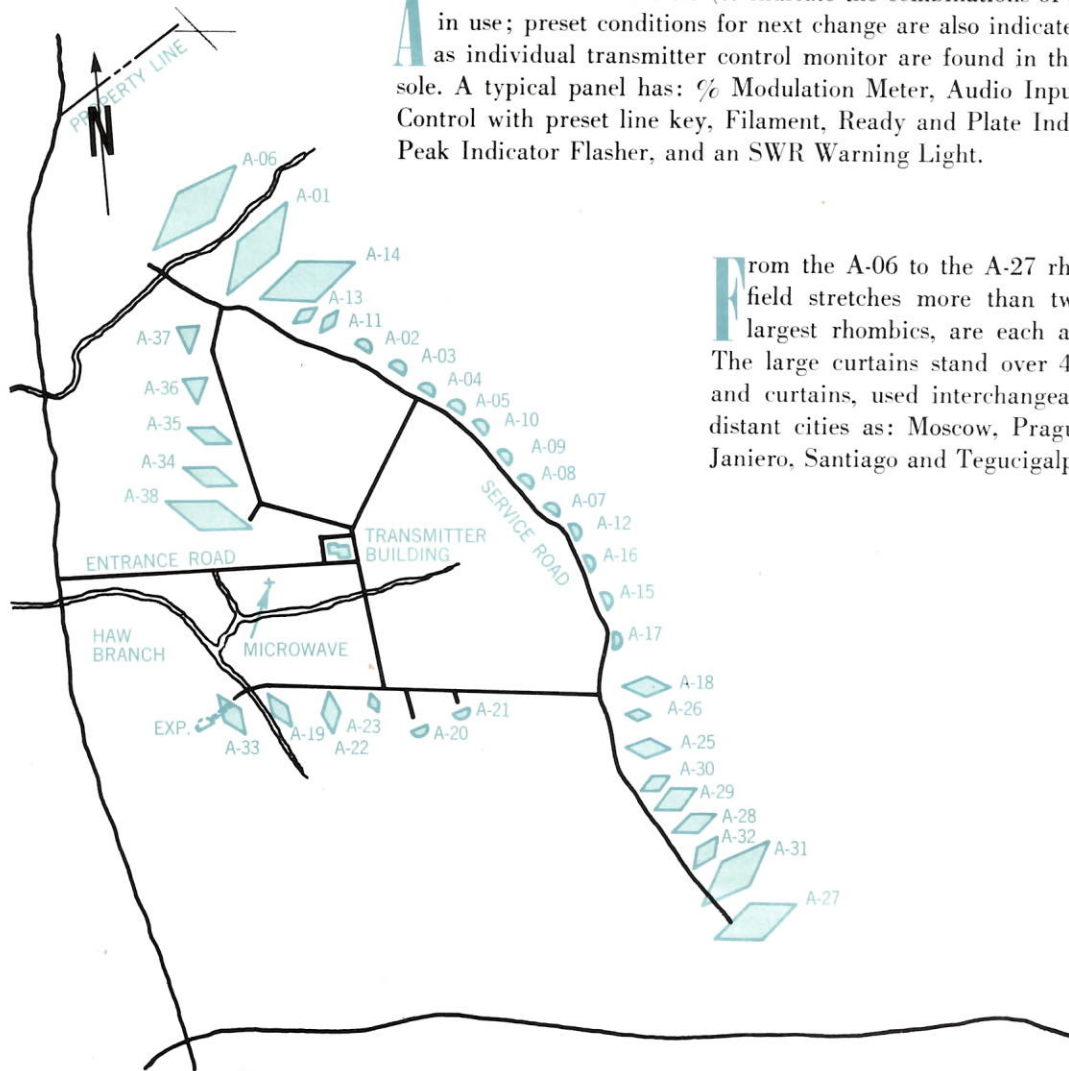 in use; preset conditions for next change are also indicate
A as individual transmitter control monitor are found in th
sole. A typical panel has: % Modulation Meter, Audio Inpu
Control with preset line key, Filament, Ready and Plate Ind
Peak Indicator Flasher, and an SWR Warning Light.
From the A-06 to the A-27 rh
field stretches more than tw
largest rhombics, are each a
The large curtains stand over 4
and curtains, used interchangea
distant cities as: Moscow, Pragu
Janiero, Santiago and Tegucigalp
PROPERTY LINE
N
A-06
A-01
A-14
A-13
A-11
A-37
A-02
A-03
A-36
A-04
A-05
A-35
A-10
A-09
A-34
A-08
A-38
A-07
SERVICE ROAD
A-12
TRANSMITTER
BUILDING
ENTRANCE ROAD
A-16
A-15
HAW
BRANCH
MICROWAVE
A-17
A-18
A-26
EXP.
A-33
A-19
A-22
A-23
A-20
A-21
A-25
A-30
A-29
A-28
A-32
A-31
A-27